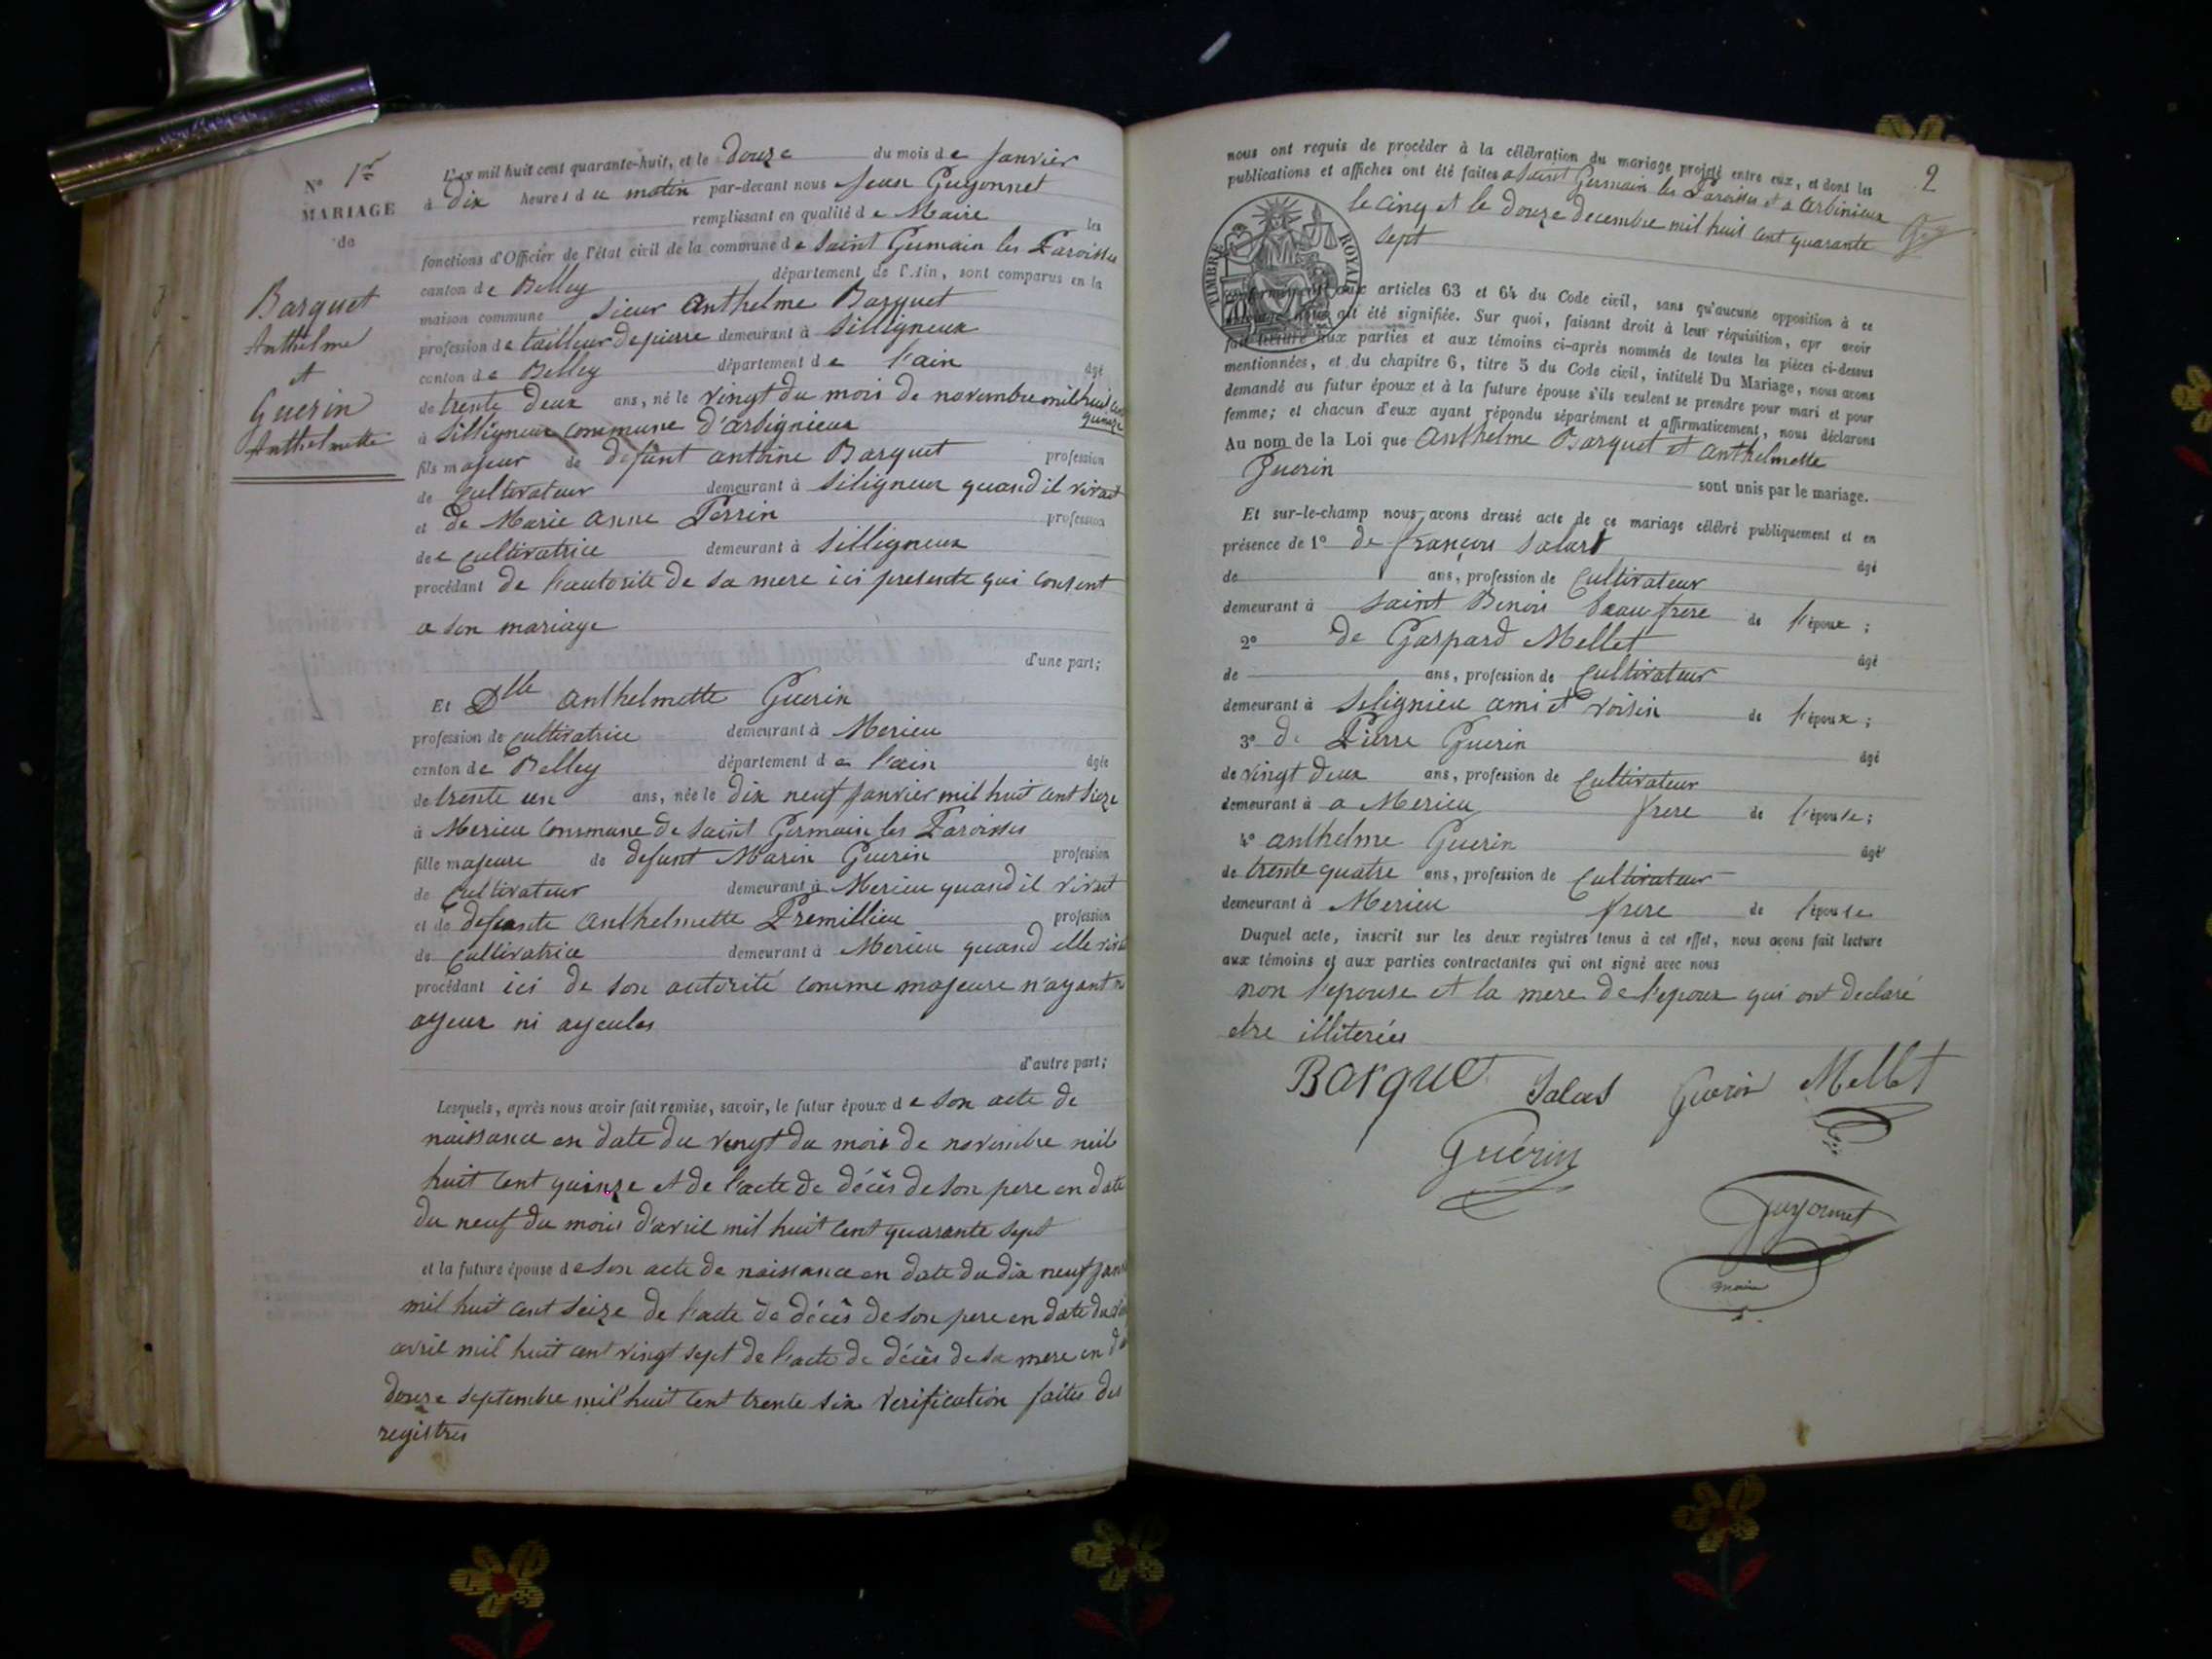 N° 1er
MARIAGE
de
Barquet
Anthelme
et
Guerin
Anthelmette
L'an mil huit cent quarante-huit, et le douze du mois de janvier
à dix heures du matin par-devant nous jean Guyonnet
remplissant en qualité de Maire les
fonctions d'Officier de l'état civil de la commune de saint Germain les Paroisses
canton de Belley département de l'Ain, sont comparus en la
maison commune sieur Anthelme Barquet
profession de tailleur de pierre demeurant à silligneux
canton de Belley département de l'ain âgé
de trente deux ans, né le vingt du mois de novembre mil huit cent
quinze
à silligneux commune d'arbignieux
fils majeur de defunt antoine Barquet profession
de cultivateur demeurant à siligneux quand il vivait
et de Marie anne Perrin profession
de e cultivatrice demeurant à silligneux
procédant de l'autorite de sa mere ici presente qui consent
a son mariage
d'une part;
Et Dlle anthelmette Guerin
profession de cultivatrice demeurant à Merieu
canton de Belley département de l'ain âgée
de trente un ans, née le dix neuf janvier mil huit cent sieze
à Merieu commune de saint Germain les Paroisses
fille majeure de defunt Marin Guerin profession
de cultivateur demeurant à Merieu quand il vivait
et de defunte anthelmette Premillieu profession
de cultivatrice demeurant à Merieu quand elle
procédant ici de son autorité comme majeure n'ayant
ayeux ni ayeules
d'autre part;
Lesquels, après nous avoir fait remise, savoir, le futur époux de son acte de
naissance en date du vingt du mois de novembre mil
huit cent quinze et de l'acte de décès de son pere en date
du neuf du mois d'avril mil huit cent quarante sept
et la future épouse de son acte de naissance en date du dix neuf
mil huit cent seize de l'acte de décès de son pere en date du
avril mil huit cent vingt sept de l'acte de décès de sa mere en
douze septembre mil huit cent trente six verification faites des
registres
2
nous ont requis de procéder à la célébration du mariage projeté entre eux, et dont les
publications et affiches ont été faites a saint Germain les Paroisses et a arbinieux
le cinq et le douze decembre mil huit cent quarante
sept
TIMBRE ROYAL
conformément aux articles 63 et 64 du Code civil, sans qu'aucune opposition à ce
mariage nous ait été signifiée. Sur quoi, faisant droit à leur réquisition, apr avoir
fait lecture aux parties et aux témoins ci-après nommés de toutes les pièces ci-dessus
mentionnées, et du chapitre 6, titre 5 du Code civil, intitulé Du Mariage, nous avons
demandé au futur époux et à la future épouse s'ils veulent se prendre pour mari et pour
femme; et chacun d'eux ayant répondu séparément et affirmativement, nous déclarons
Au nom de la Loi que Anthelme Barquet et anthelmette
Guerin
sont unis par le mariage.
Et sur-le-champ nous avons dressé acte de ce mariage célébré publiquement et en
présence de 1° de françois Salart
âgé
de ans, profession de cultivateur
demeurant à saint Benois beau frere de l'époux;
2° de Gaspard Mellet
âgé
de ans, profession de cultivateur
demeurant à silignieu ami et voisin de l'époux;
3° de Pierre Guerin
âgé
de vingt deux ans, profession de cultivateur
demeurant à a Merieu frere de l'épouse;
4° anthelme Guerin
âgé
de trente quatre ans, profession de cultivateur
demeurant à Merieu frere de l'épouse
Duquel acte, inscrit sur les deux registres tenus à cet effet, nous avons fait lecture
aux témoins et aux parties contractantes qui ont signé avec nous
non l'epouse et la mere de l'epoux qui ont declaré
etre illiterées
Barquet Guerin Mellet
Guérin
Guyonnet
maire